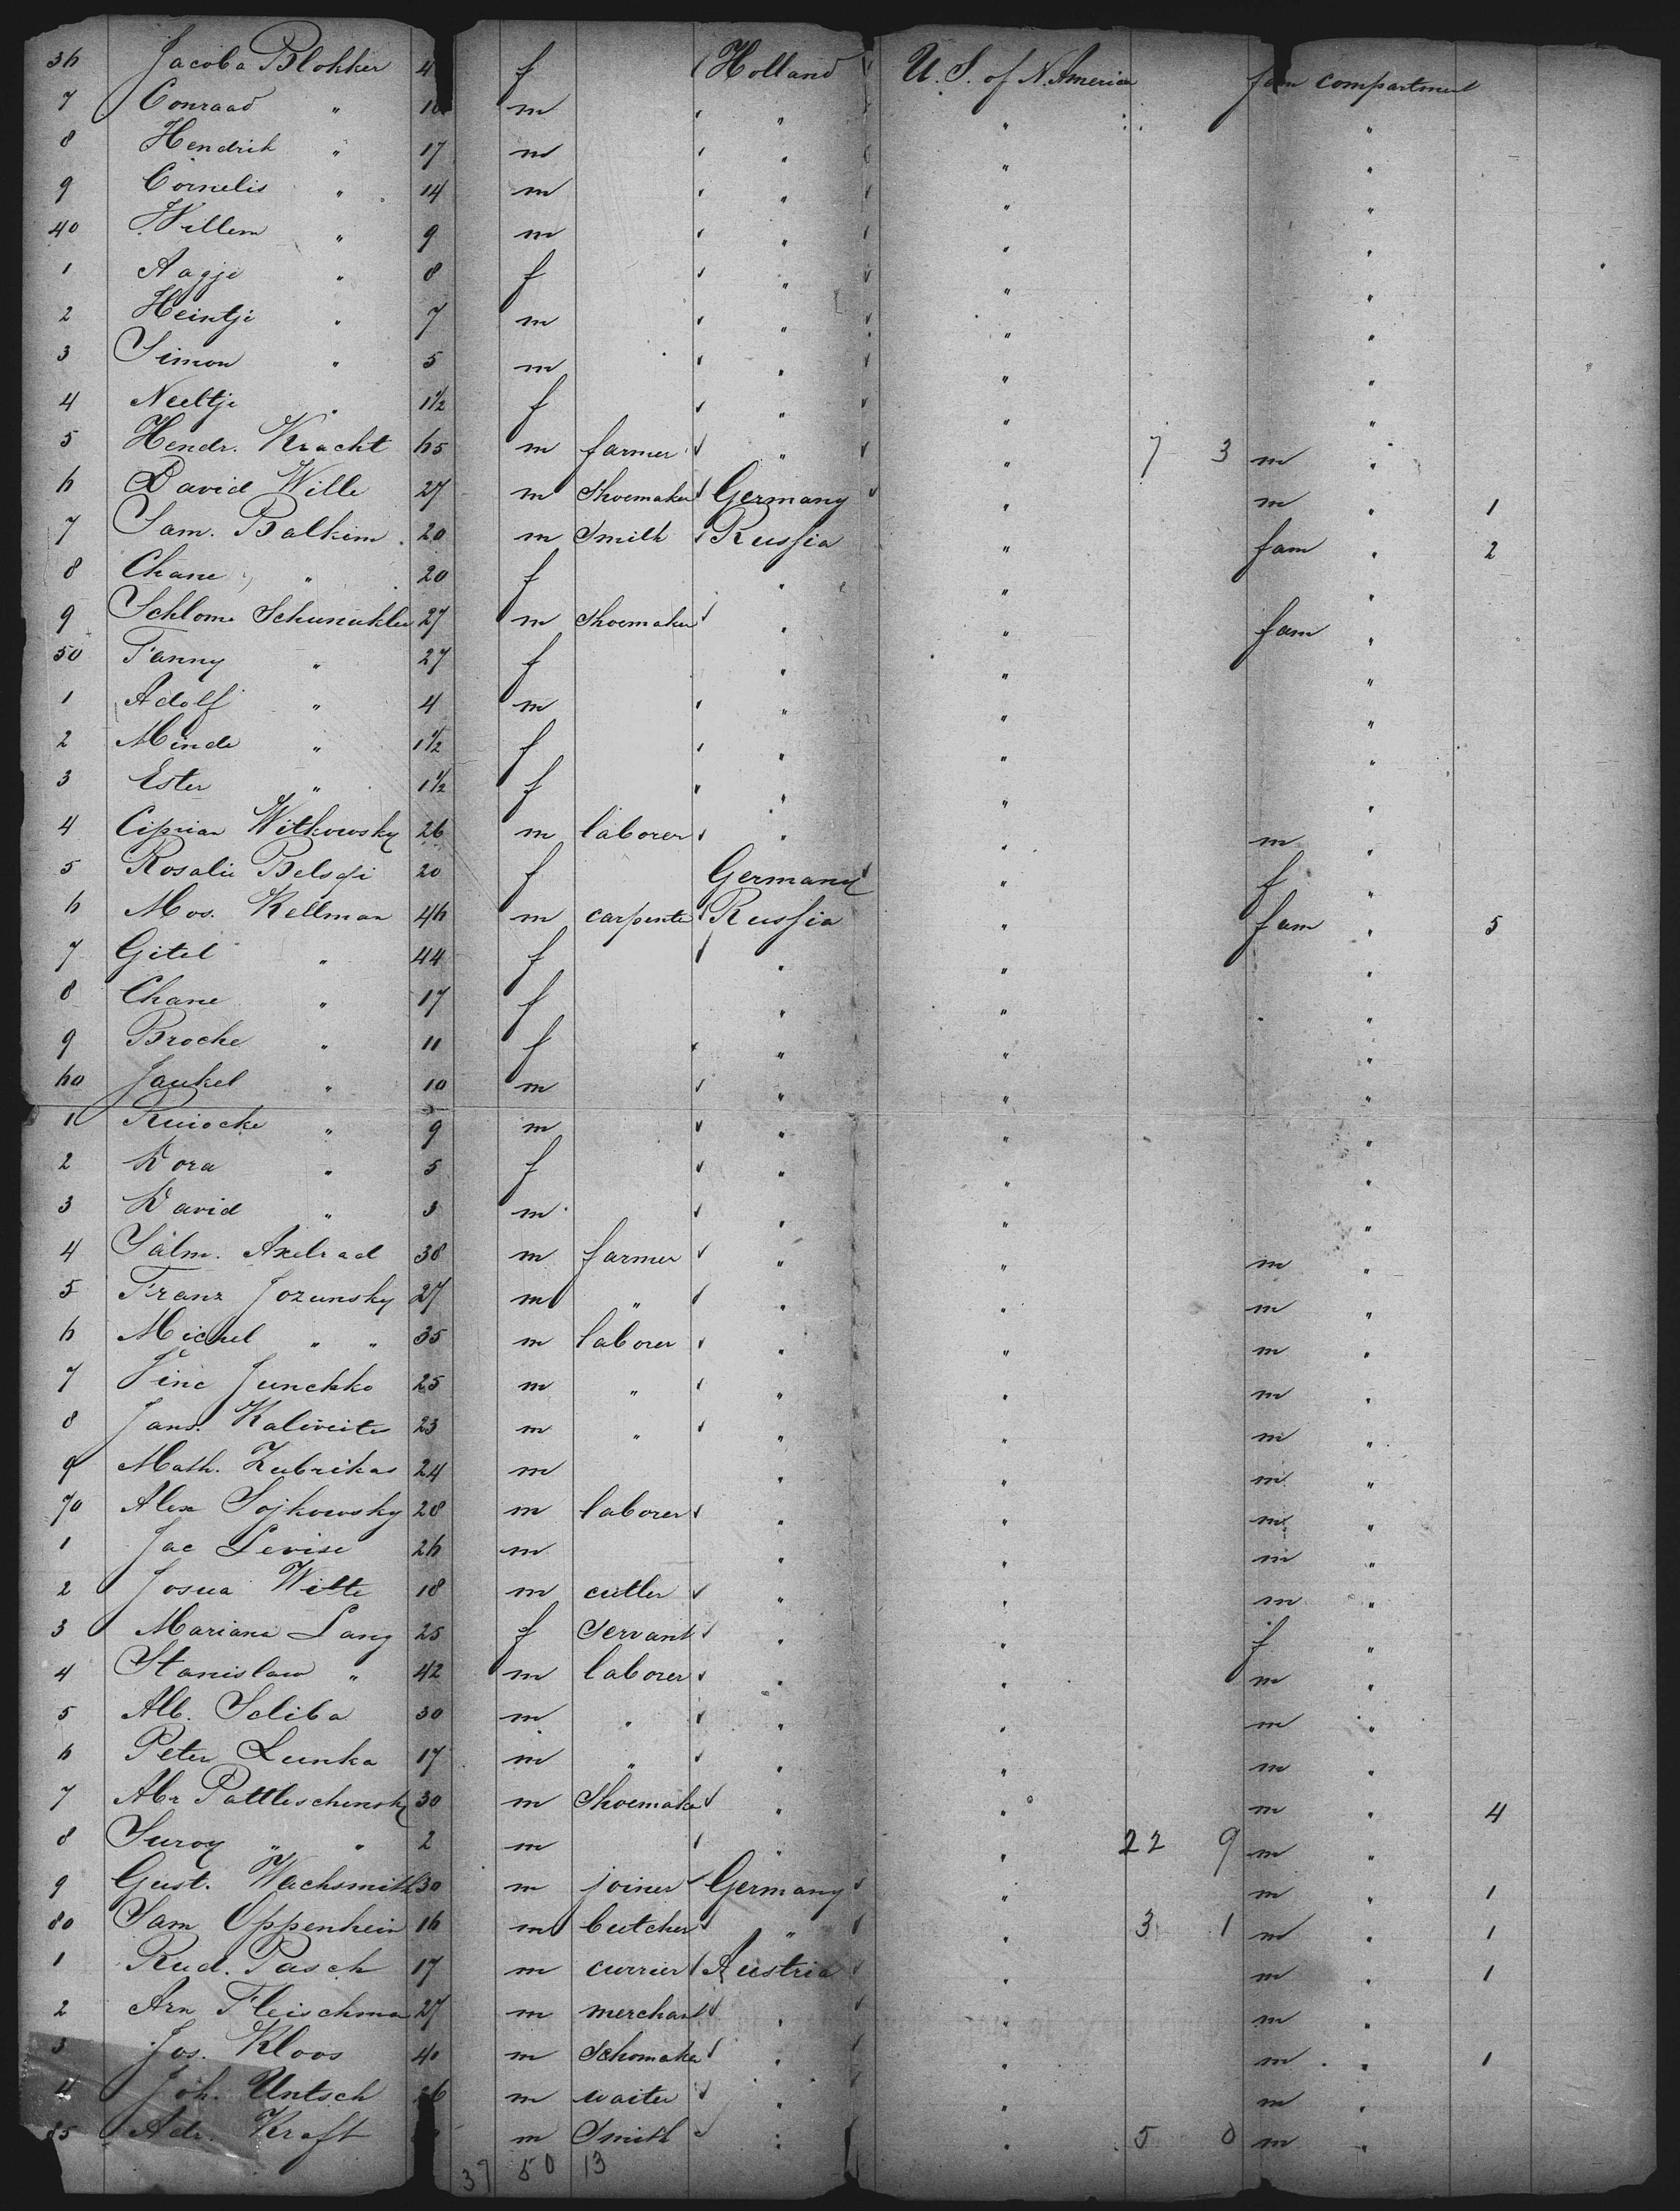 36 Jacoba Blokker 4 f Holland U. S. of N. America fam compartment
7 Conraad " 10 m " " "
8 Hendrik " 17 m " " "
9 Cornelis " 14 m " " "
40 Willem " 9 m " " "
1 Aagje " 8 f " " "
2 Heintje " 7 m " " "
3 Simon " 5 m " " "
4 Neeltje " 1 1/2 f " " "
5 Hendr. Kracht 65 m farmer " " 7 3 m "
6 David Wille 27 m Shoemaker Germany " m " 1
7 Sam. Balkim 20 m Smith Russia " fam " 2
8 Chane " 20 f " " "
9 Schlome Schunukler 27 m Shoemaker " " fam "
50 Fanny " 27 f " " "
1 Adolf " 4 m " " "
2 Minde " 1 1/2 f " " "
3 Ester " 1 1/2 f " " "
4 Ciprian Witkowsky 26 m laborer " " m "
5 Rosalie 20 f Germany " f "
6 Mos. Kellman 46 m carpenter Russia " fam " 5
7 Gitel " 44 f " " "
8 Chane " 17 f " " "
9 Broche " 11 f " " "
60 Jankel " 10 m " " "
1 " 9 m " " "
2 Dora " 5 f " " "
3 David " 3 m " " "
4 Salm. Axelrad 38 m farmer " " m "
5 Franz Jozunsky 27 m " " " m "
6 Michel " " 35 m laborer " " m "
7 Vinc Junchko 25 m " " " m "
8 Jans. Kaliveites 23 m " " " m "
9 Math. Zubrikas 24 m " " m "
70 Alex Sojkowsky 28 m laborer " " m "
1 Jac Levise 26 m " " m "
2 Josua Witte 18 m cutler " " m "
3 Mariane Lang 25 f Servant " " f "
4 Stanislaw " 42 m laborer " " m "
5 Alb. Seliba 30 m " " " m "
6 Peter Lunka 17 m " " " m "
7 Abr Pattleschensky 30 m Shoemaker " " m " 4
8 Suroy " " 2 m " " 22 9 m "
9 Gust. Wachsmith 30 m joiner Germany " m " 1
80 Sam Oppenheim 16 m butcher " " 3 1 m " 1
1 Rud. Pasch 17 m currier Austria " m " 1
2 Arn Fleischman 27 m merchant " " m "
3 Jos. Kloos 40 m Schomaker " " m " 1
4 Joh. Untsch 26 m waiter " " m "
85 Adr. Kraft m Smith " " 5 0 m "
37 50 13